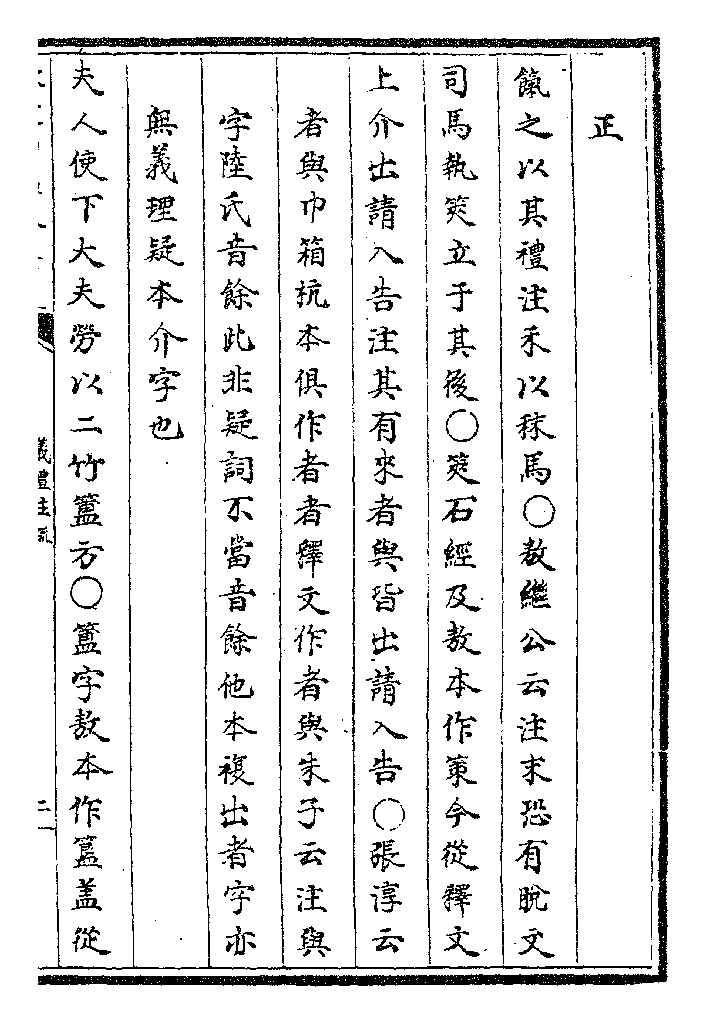 正
餼之以其禮注禾以秣馬○敖繼公云注末恐有脫文
司馬執筴立于其後○筴石經及敖本作策今從釋文
上介出請入告注其有來者與皆出請入告○張淳云
者與巾箱杭本俱作者者釋文作者與朱子云注與
字陸氏音餘此非疑詞不當音餘他本複出者字亦
無義理疑本介字也
夫人使下大夫勞以二竹簠方○簠字敖本作簋蓋從
儀禮注疏
二